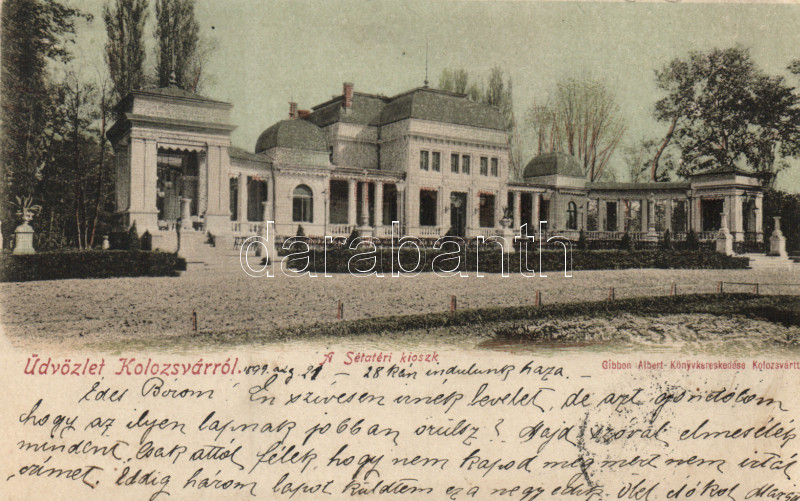 Darabanth
Üdvözlet Kolozsvárról.
A Sétatéri kioszk
Gibbon Albert-Könyvkereskedése Kolozsvártt
1899 aug 21 - 28 kán indulunk haza.
Édes Böröm! Én szívesen irnék levelet, de azt gondolom
hogy az ilyen lapnak jobban örülsz? Majd szóval elmesélek
mindent, csak attól félek, hogy nem kapod meg mert nem irtál
számot. Eddig három lapot küldtem ez a negyedik.